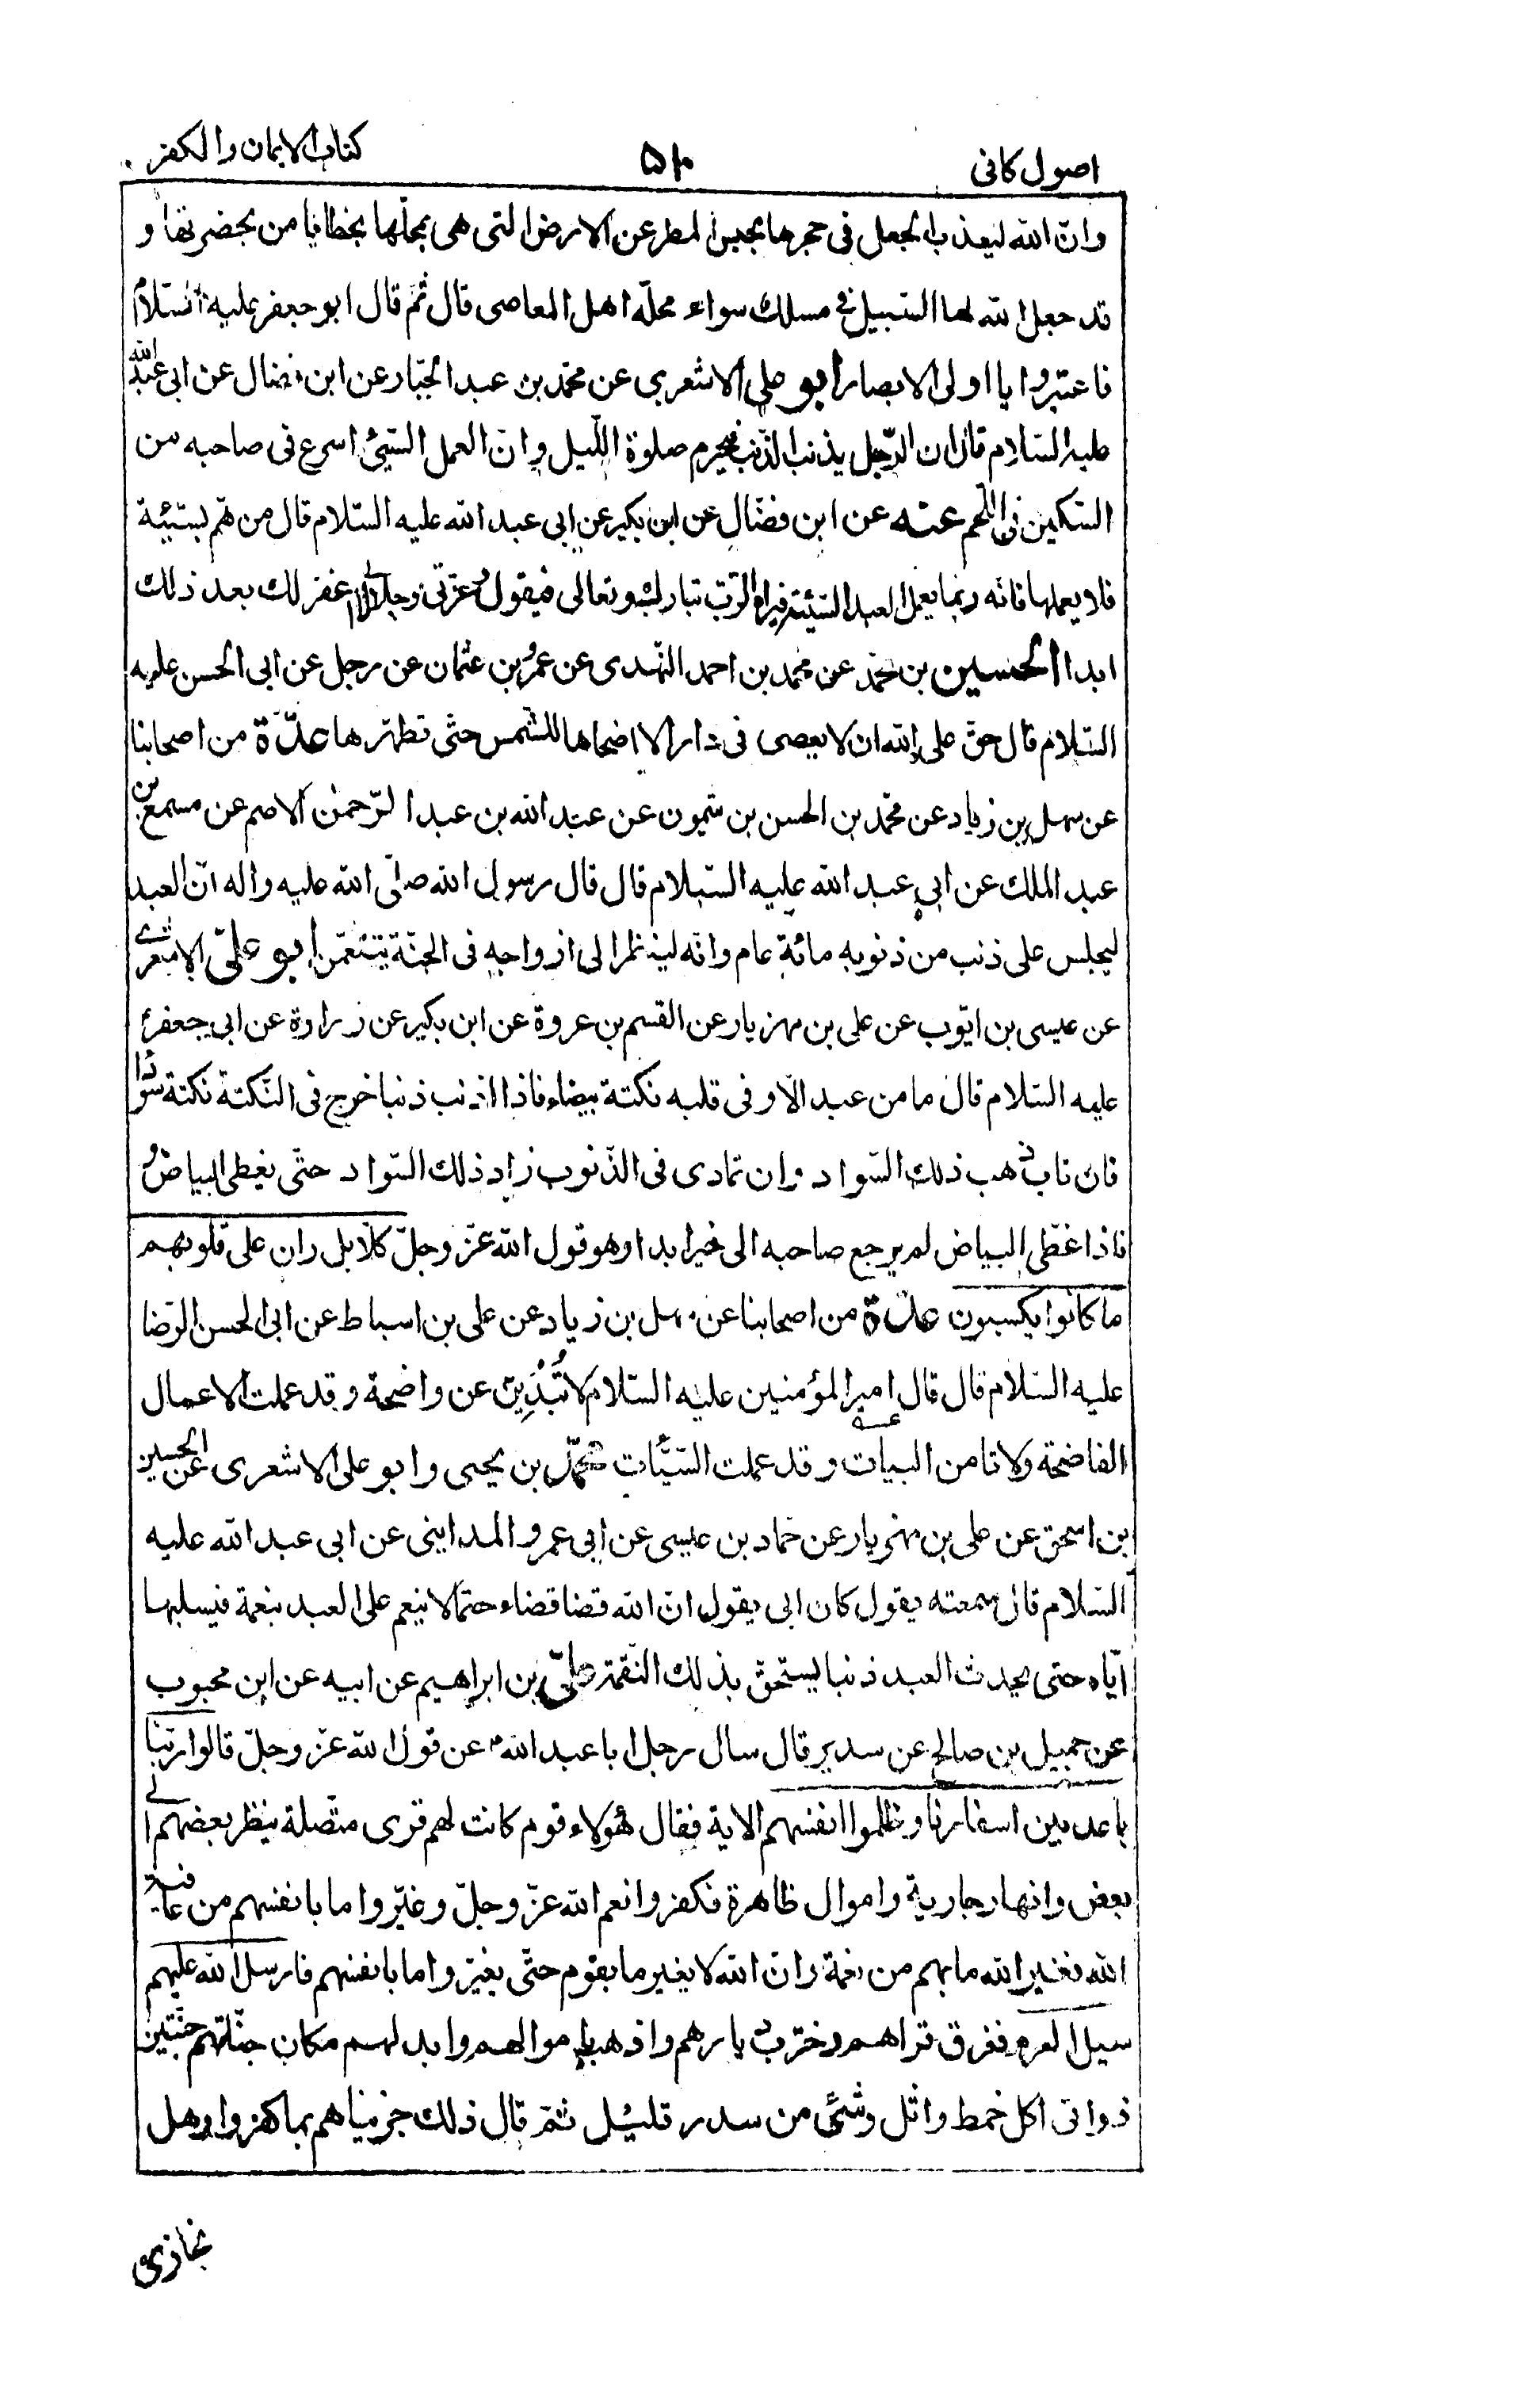 اصول كافى ۵۱۰ كتاب الايمان والكفر
وانّ الله ليعذب الجعل فى جحرها بحبس المطر عن الارض التى هى بمحلّها بخطايا من بحضرتها و
قد جعل الله لها السّبيل فى مسلك سواء محلّه اهل المعاصى قال ثمّ قال ابو جعفر عليه السّلام
فاعتبروا يا اولى الابصار ابو على الاشعرى عن محمّد بن عبد الجبّار عن ابن فضال عن ابى عبد الله
عليه السّلام قال ان الرّجل يذنب الذّنب فيحرم صلوة اللّيل وانّ العمل السّيّئ اسرع فى صاحبه من
السّكين فى اللّحم عنه عن ابن فضّال عن ابن بكير عن ابى عبد الله عليه السّلام قال من همّ بسيّئة
فلا يعملها فانّه ربما يعمل العبد السّيئة فيراه الرّب تبارك وتعالى فيقول وعزّتى وجلالى لا اغفر لك بعد ذلك
ابدا الحسين بن محمّد عن محمد بن احمد النّهدى عن عمرو بن عثمان عن رجل عن ابى الحسن عليه
السّلام قال حقّ على الله ان لا يعصى فى دار الا اضحاها للشّمس حتّى تطهّرها عدّة من اصحابنا
عن سهل بن زياد عن محمّد بن الحسن بن شمون عن عبد الله بن عبد الرّحمن الاصم عن مسمع بن
عبد الملك عن ابى عبد الله عليه السّلام قال قال رسول الله صلّى الله عليه واله انّ العبد
ليحبس على ذنب من ذنوبه مائة عام وانّه لينظر الى ازواجه فى الجنّة يتنعّمن ابو علىّ الاشعرى
عن عيسى بن ايّوب عن على بن مهزيار عن القسم بن عروة عن ابن بكير عن زرارة عن ابى جعفر
عليه السّلام قال ما من عبد الّا وفى قلبه نكتة بيضاء فاذا اذنب ذنبا خرج فى النّكتة نكتة سوداء
فان تاب ذهب ذلك السّواد وان تمادى فى الذّنوب زاد ذلك السّواد حتّى يغطى البياض و
فاذا غطّى البياض لم يرجع صاحبه الى خير ابدا وهو قول الله عزّ وجلّ كلّا بل ران على قلوبهم
ما كانوا يكسبون عدّة من اصحابنا عن سهل بن زياد عن على بن اسباط عن ابى الحسن الرّضا
عليه السّلام قال قال امير المؤمنين عليه السّلام لا تُبْدِيَنَّ عن واضحة وقد عملت الاعمال
الفاضحة ولا تامن البيات وقد عملت السّيّئات محمّد بن يحيى وابو على الاشعرى عن الحسين
بن اسحق عن على بن مهزيار عن حماد بن عيسى عن ابى عمرو المداينى عن ابى عبد الله عليه
السّلام قال سمعته يقول كان ابى يقول انّ الله قضا قضاء حتما لا ينعم على العبد بنعمة فيسلبها
ايّاه حتى يحدث العبد ذنبا يستحقّ بذلك النّقمة علىّ بن ابراهيم عن ابيه عن ابن محبوب
عن جميل بن صالح عن سدير قال سال رجل ابا عبد الله عن قول الله عزّ وجلّ قالوا ربّنا
باعد بين اسفارنا وظلموا انفسهم الاية فقال هؤلاء قوم كانت لهم قرى متّصلة ينظر بعضهم الى
بعض وانهار جارية واموال ظاهرة فكفروا نعم الله عزّ وجلّ وغيّروا ما بانفسهم من عافية
الله فغير الله ما بهم من نعمة وانّ الله لا يغير ما بقوم حتّى يغيّروا ما بانفسهم فارسل الله عليهم
سيل العرم ففرق قراهم وخرّب ديارهم واذهب باموالهم وابدلهم مكان جنّاتهم جنّتين
ذواتى اكل خمط واثل وشئ من سدر قليل ثمّ قال ذلك جزيناهم بما كفروا وهل
نجازى